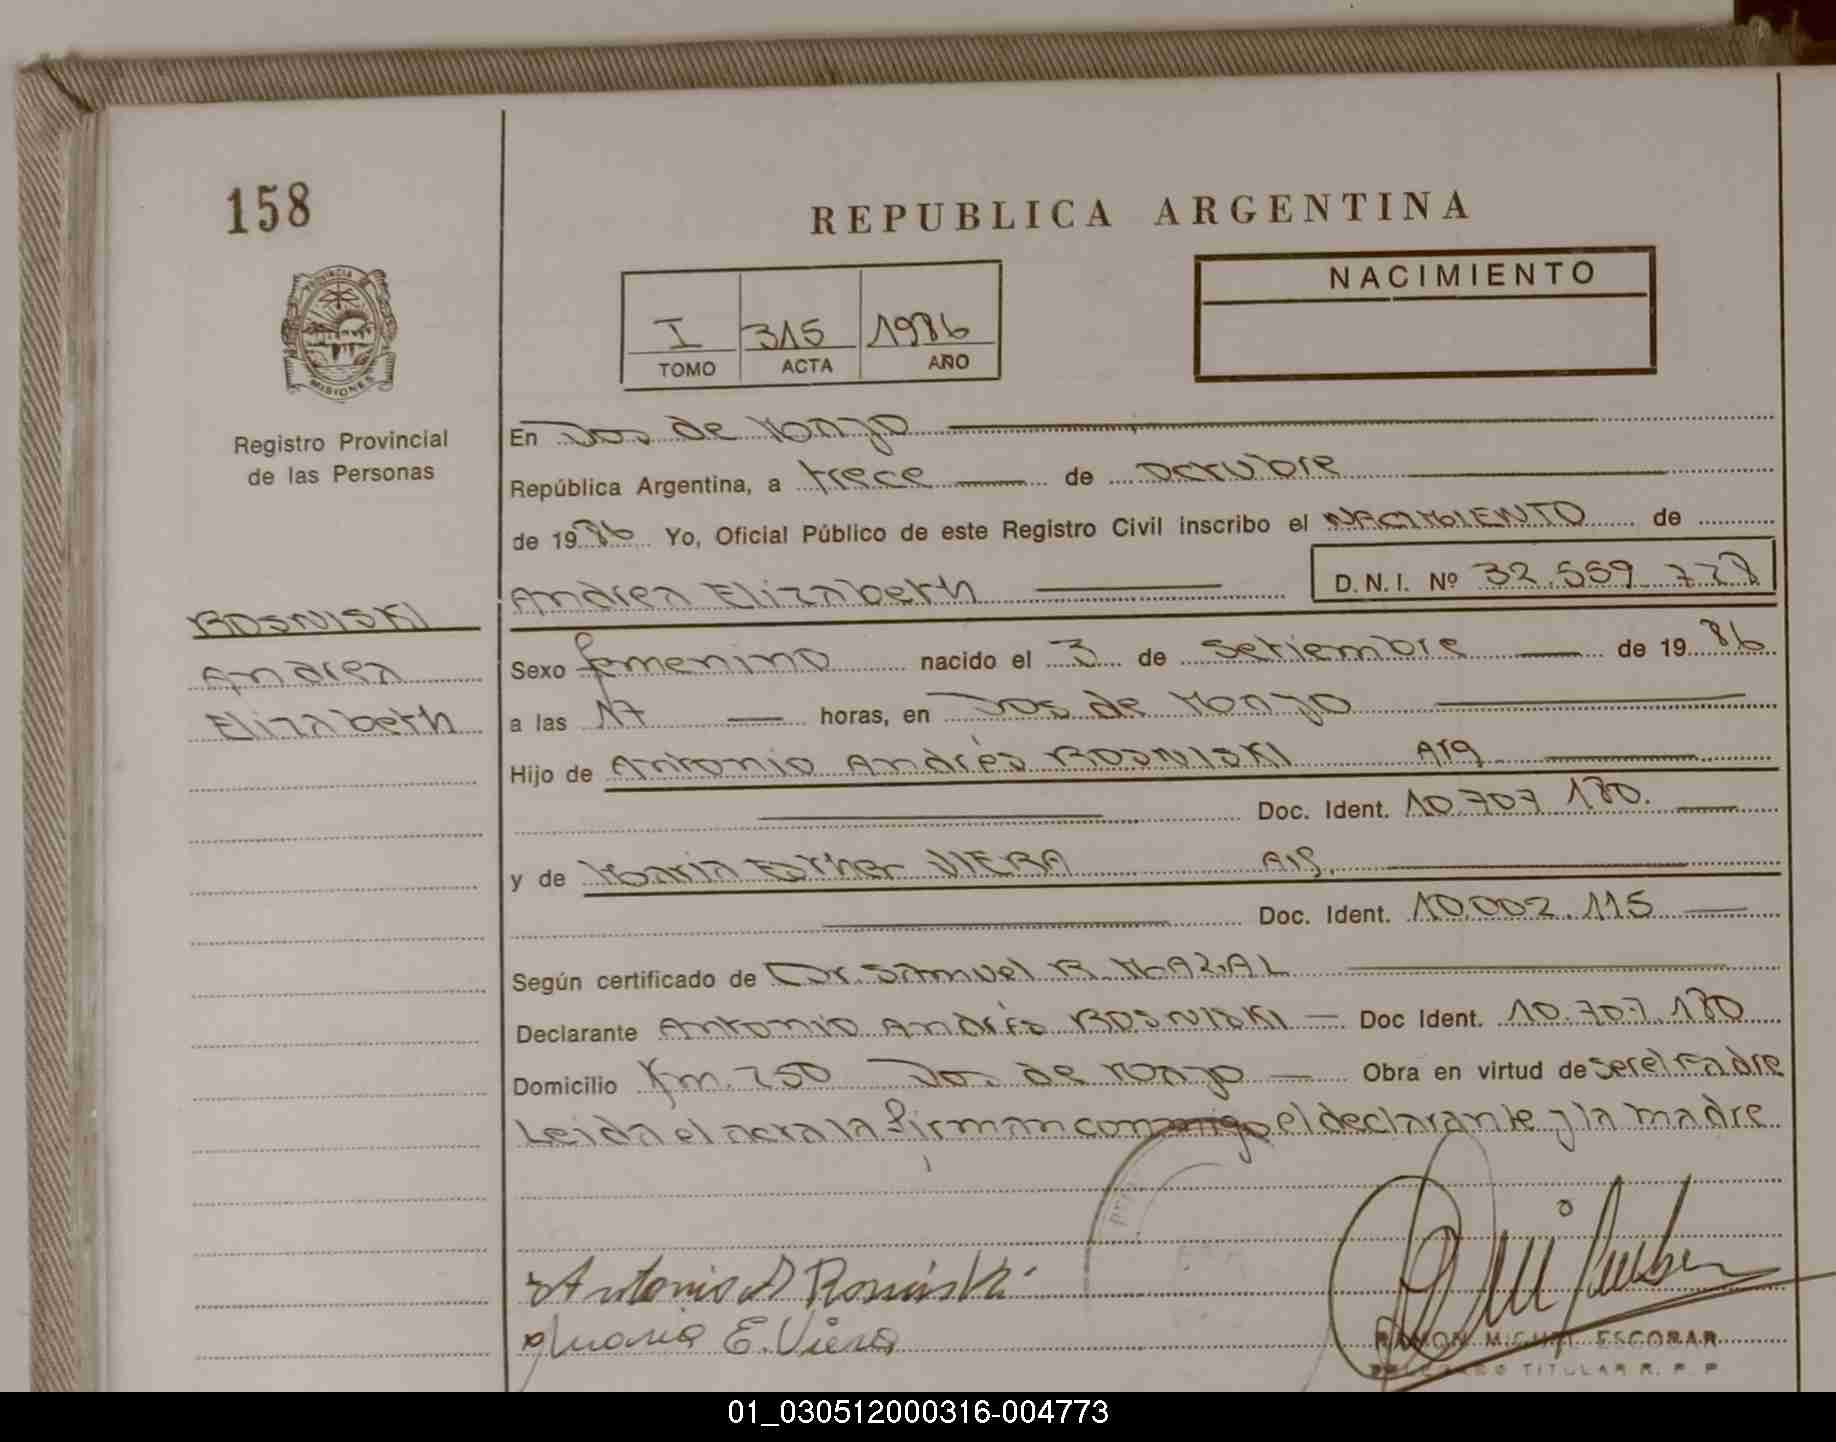 158
REPUBLICA ARGENTINA
PROVINCIA
MISIONES
Registro Provincial
de las Personas
I 315 1986
TOMO ACTA AÑO
NACIMIENTO
En Dos de Mayo
República Argentina, a trece de octubre
de 1986 Yo, Oficial Público de este Registro Civil inscribo el NACIMIENTO de
Andrea Elizabeth D.N.I. Nº 32.559.728
ROSNISKI
Andrea
Elizabeth
Sexo femenino nacido el 3 de setiembre de 1986
a las 17 horas, en Dos de Mayo
Hijo de Antonio Andrés ROSNISKI Arg
Doc. Ident. 10.707.180.
y de Maria Esther VIERA Arg.
Doc. Ident. 10.002.115
Según certificado de Dr. Samuel R. MAZAL
Declarante Antonio Andrés ROSNISKI Doc Ident. 10.707.180
Domicilio Km. 250 Dos de Mayo Obra en virtud de ser el Padre
Leida el acta la firman conmigo el declarante y la madre
Antonio A Rosniski
Maria E. Viera
RAMON MIGUEL ESCOBAR
DELEGADO TITULAR R. P. P
01_030512000316-004773